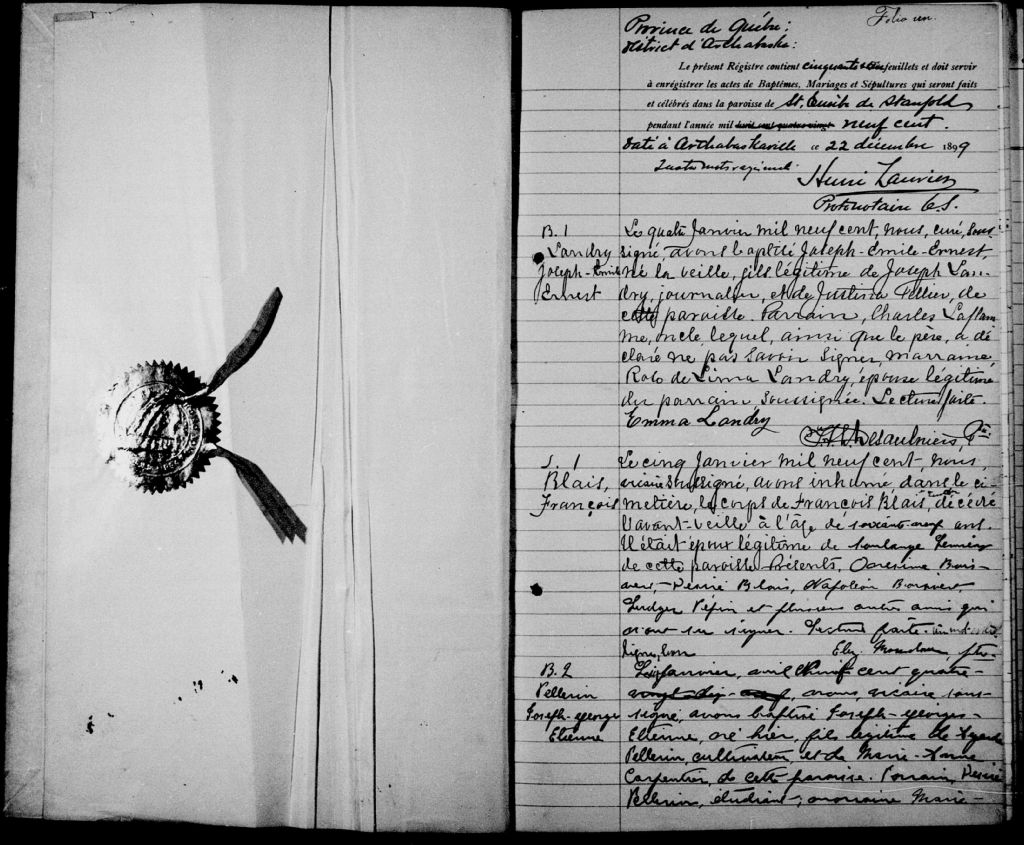 Folio un.
Province de Québec:
District d'Arthabaska:
Le présent Régistre contient cinquante feuillets et doit servir
à enrégistrer les actes de Baptêmes, Mariages et Sépultures qui seront faits
et célébrés dans la paroisse de St. Eusèbe de Stanfold
pendant l'année mil huit cent quatre vingt neuf cent.
Daté à Arthabaskaville ce 22 décembre 1899
Quatre mots rayés nuls
Henri Laurier
Protonotaire C.S.
B. 1
Landry
Joseph-Emile
Ernest
Le quatre Janvier mil neuf cent, nous, curé, sous
signé, avons baptisé Joseph-Emile-Ernest,
né la veille, fils légitime de Joseph Lan-
dry, journalier, et de Justina Tellier, de
cette paroisse. Parrain, Charles Laflam
me, oncle, lequel, ainsi que le père, a dé
claré ne pas savoir signer, marraine,
Rose de Lima Landry, épouse légitime
du parrain soussignée. Lecture faite.
Emma Landry
Desaulniers Ptre
S. 1
Blais,
François
Le cinq Janvier mil neuf cent, nous,
vicaire soussigné, avons inhumé dans le ci-
metière, le corps de François Blais, décédé
l'avant-veille à l'âge de soixante-neuf ans.
Il était époux légitime de Soulange
de cette paroisse. Présents, Onésime Bois-
vert, Désiré Blais, Napoléon Boisvert,
Ludger Pépin et plusieurs autres amis qui
n'ont su signer. Lecture faite.
Elz. ptre.
B. 2
Pellerin
Joseph-george
Etienne
Janvier, mil neuf cent quatre-
vingt-dix-neuf, nous, vicaire sous-
signé, avons baptisé Joseph-georges-
Etienne, né hier, fils légitime de
Pellerin, cultivateur, et de Marie-
Carpentier, de cette paroisse. Parrain, Désiré
Pellerin, étudiant, marraine Marie-